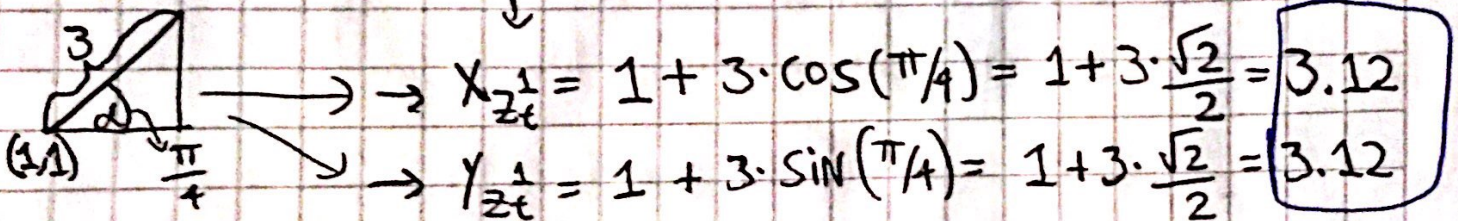 3
α
(1,1)
π/4
→ X_{z_t^1} = 1 + 3·cos(π/4) = 1+3·√2/2 = 3.12
→ Y_{z_t^1} = 1 + 3·sin(π/4) = 1+3·√2/2 = 3.12